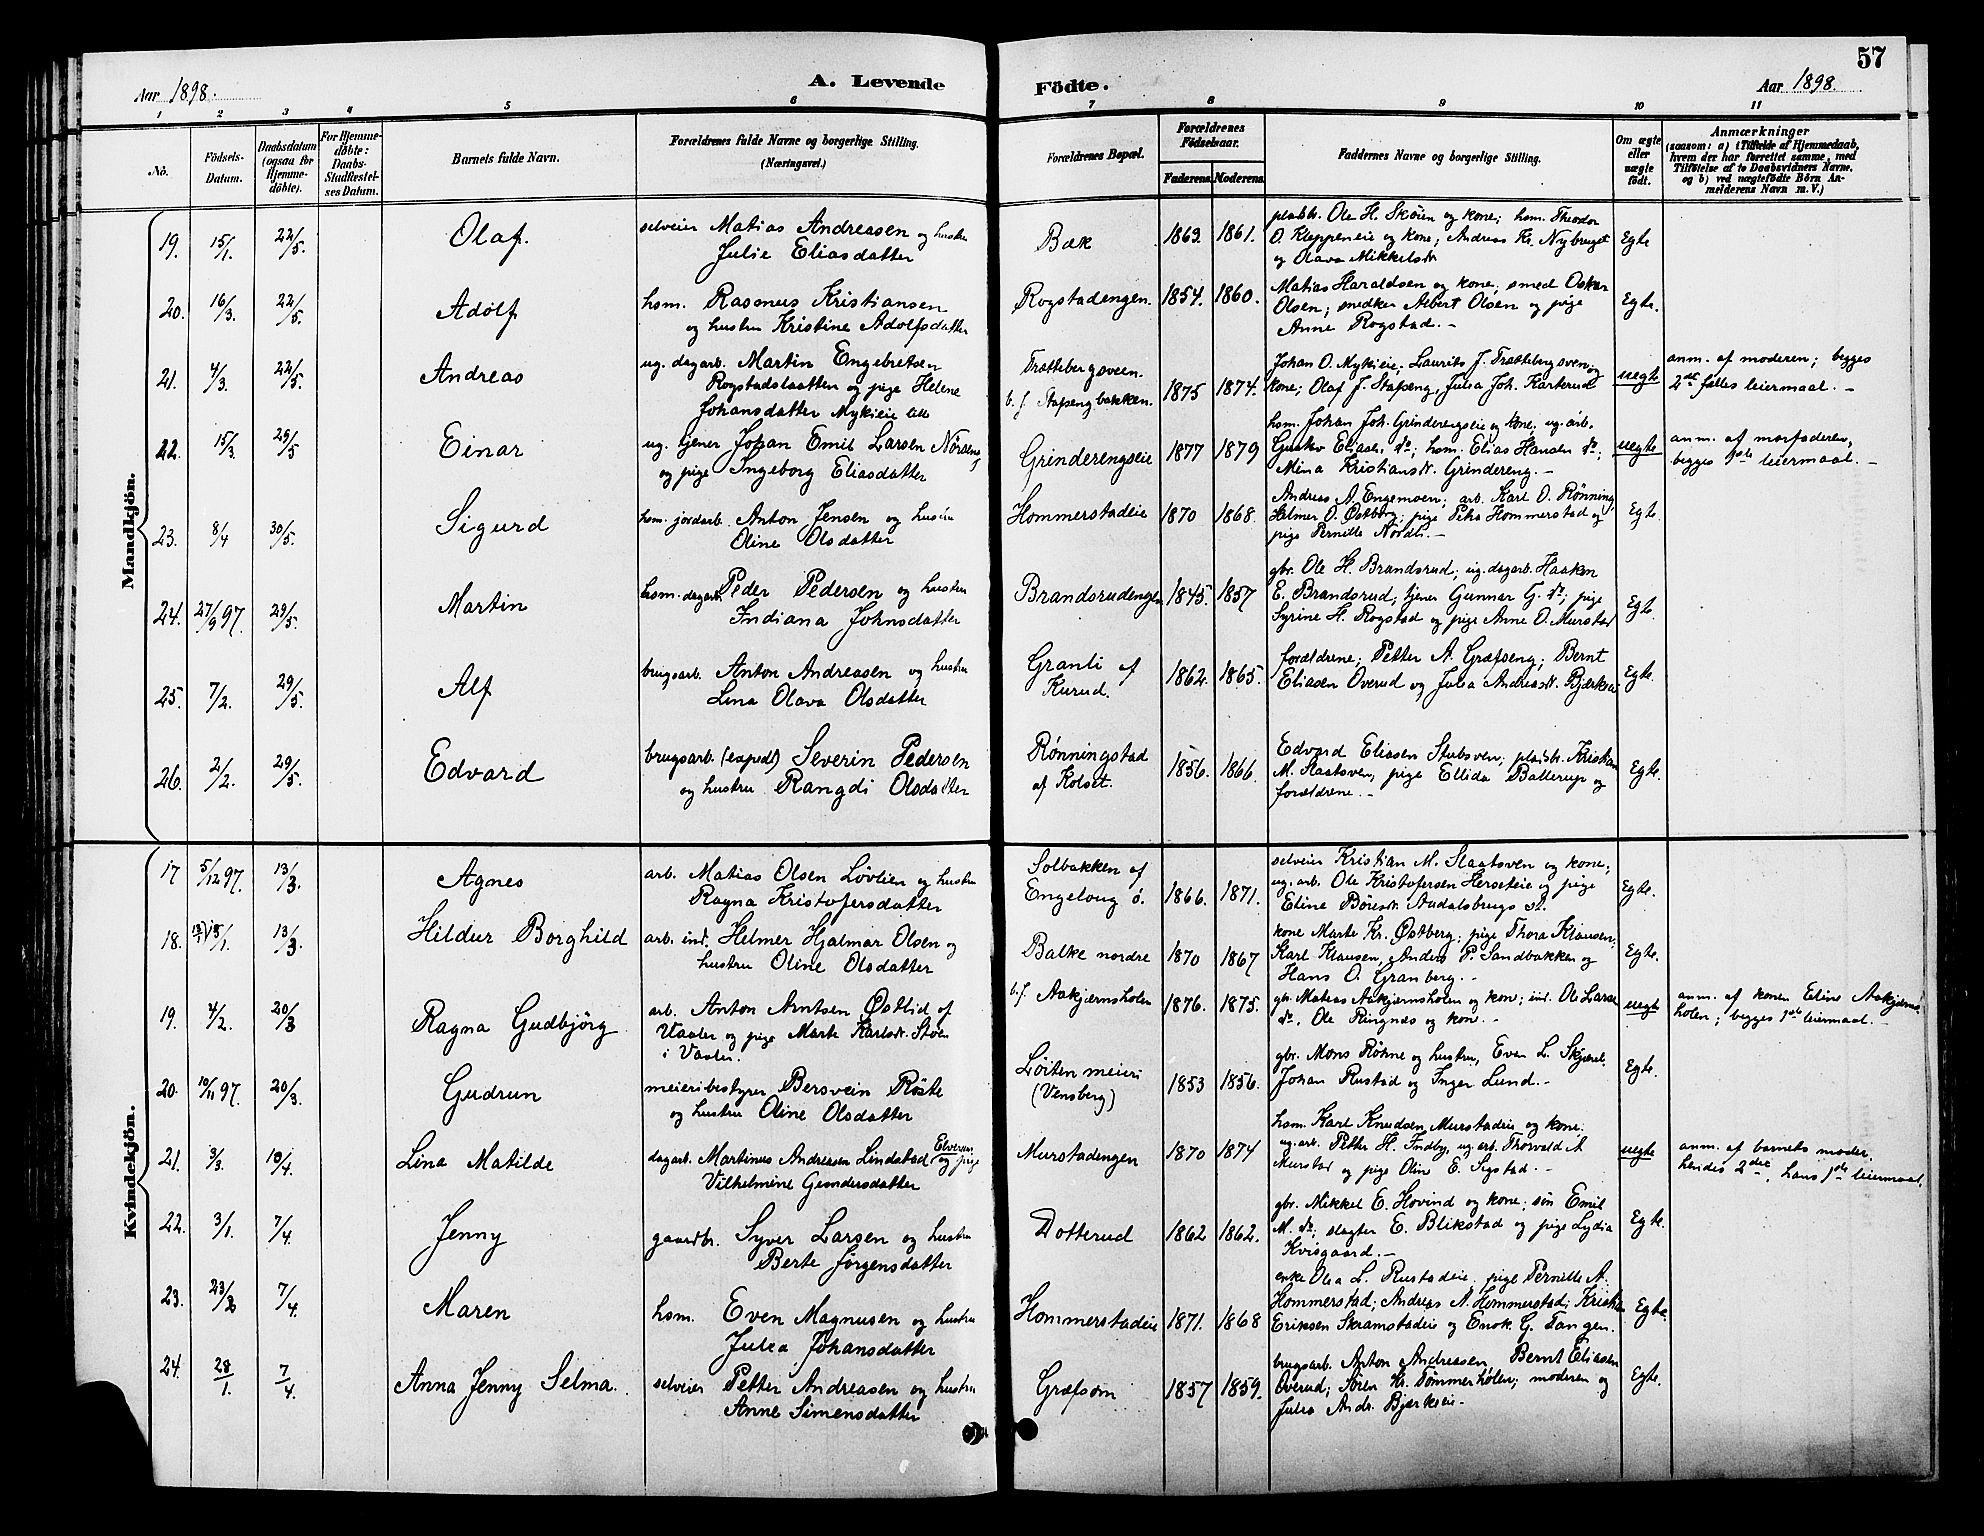 57
Aar 1898.
A. Levende
Födte.
Aar 1898.
1 2 3 4 5 6 7 8 9 10 11
No.
Födsels-
Datum.
Daabsdatum
(ogsaa for
Hjemme-
döbte).
For Hjemme-
döbte:
Daabs-
Stadfæstel-
ses Datum.
Barnets fulde Navn.
Forældrenes fulde Navne og borgerlige Stilling.
(Næringsvei.)
Forældrenes Bopæl.
Forældrenes
Födselsaar.
Faderens. Moderens.
Faddernes Navne og borgerlige Stilling.
Om ægte
eller
uægte
födt.
Anmærkninger
(saasom: a) i Tilfælde af Hjemmedaab,
hvem der har forrettet samme, med
Tilföielse af to Daabsvidners Navne,
og b) ved uægtefödte Börn An-
melderens Navn m. V.)
Mandkjön.
19. 15/1. 22/5. Olaf. selveier Matias Andreasen og hustru
Julie Eliasdatter
Bæk 1863. 1861.
plabr. Ole H. Skøien og kone; hsm. Theodor
O. Kleppeneie og kone; Andreas Kr. Nybruget
og Olava Mikkelsdr.
Egte
20. 16/3. 22/5. Adolf. hsm. Rasmus Kristiansen
og hustru Kristine Adolfsdatter
Rogstadengen. 1854. 1860.
Matias Haraldsen og kone; smed Oskar
Olsen; snedker Albert Olsen og pige
Anne Rogstad. —
Egte.
21. 4/3. 22/5. Andreas ug. dagarb. Martin Engebretsen
Rogstadslaatten og pige Helene
Johansdatter Mykieie
Trættebergsveen.
b. f. Stapengbakken. 1875 1874.
Johan O. Mykieie; Laurits J. Trættebergsveen og
kone; Olaf J. Stapeng, Julia Joh. Karterud
uegte
anm. af moderen; begges
2det fælles leiermaal. —
22. 15/3. 29/5 Einar ug. tjener Johan Emil Larsen
og pige Ingeborg Eliasdatter
Grinderengseie 1877 1879
hsm. Johan Joh. Grinderengseie og kone, ug. arb.
Gustav Eliasen do; hsm. Elias Hansen do;
Mina Kristiansdr. Grindereng. —
uegte
anm. af morfaderen,
begges 1ste leiermaal. —
23. 8/4 30/5. Sigurd hsm. jordarb. Anton Jensen og hustru
Oline Olsdatter
Hommerstadeie 1870 1868.
Andreas A. Engemoen; arb. Karl O. Rønning
Helmer O. Østberg; pige Petra Hommerstad og
pige Pernille Nordli. —
Egte.
24. 27/9 97. 29/5. Martin hsm. dagarb. Peder Pedersen og hustru
Indiana Johnsdatter
Brandsrudengen 1845. 1857
gbr. Ole H. Brandsrud; ug. dagarb. Haaken
E. Brandsrud; tjener Gunnar G. do; pige
Syrine H. Rogstad og pige Anne O. Murstad
Egte
25. 7/2. 29/5. Alf brugsarb. Anton Andreasen og hustru
Lina Olava Olsdatter
Granli af
Kurud. 1862. 1865.
forældrene; Petter A. Græfseng; Bernt
Eliasen Overud og Julia Andreasdr. Bjærkeie
Egte.
26. 2/2. 29/5. Edvard brugsarb. (exped) Severin Pedersen
og hustru Rangdi Olsdatter
Rønningstad
af Kolset. 1856. 1866.
Edvard Eliasen Stubsven; pladsbr. Kristian
M. Slaatsven, pige Ellida Ballerup og
forældrene. —
Egte.
Kvindekjön.
17 5/12 97. 13/3. Agnes arb. Matias Olsen Løvlien og hustru
Ragna Kristofersdatter
Solbakken af
Engeloug ö. 1866. 1871.
selveier Kristian M. Slaatsven og kone;
ug. arb. Ole Kristofersen Herseteie og pige
Eline Böresdr. Aadalsbrugs st.
Egte.
18. 15/1. 13/3. Hildur Borghild arb. ind. Helmer Hjalmar Olsen og
hustru Oline Olsdatter
Balke nordre 1870 1867
kone Marte Kr. Østberg; pige Thora Klausen,
Karl Klausen, Anders P. Sandbakken og
Hans O. Granberg. —
Egte.
19. 4/2. 20/3 Ragna Gudbjörg arb. Anton Arntsen Østlid af
Vaaler og pige Marte Karlsdr. Stoen
i Vaaler.
b. f. Aakjærnsholen 1876. 1875.
gbr. Matias Aakjærnsholen og kone; ind. Ole Larsen
do, Ole Ringnæs og kone. —
uegte
anm. af konen Eline Aakjærns-
holen; begges 1ste leiermaal. —
20. 10/11 97. 20/3. Gudrun meieribestyrer Bersvein Röste
og hustru Oline Olsdatter
Løiten meieri
(Vensberg) 1853 1856.
gbr. Mons Røhne og hustru, Even L. Skjæret,
Johan Rustad og Inger Lund. —
Egte.
21. 3/3. 10/4. Lina Matilde dagarb. Martinus Andreasen Lindstad Elverum og pige
Vilhelmine Gundersdatter
Murstadengen 1870 1874
hsm. Karl Knudsen Murstadeie og kone.
ug. arb. Petter H. Indby, ug. arb. Thorvald A
Murstad og pige Oline E. Sigstad. —
uegte
anm. af barnets moder.
hendes 2det, hans 1ste leiermaal.
22. 3/1. 7/4. Jenny gaardbr. Syver Larsen og hustru
Berte Jørgensdatter
Dotterud 1862 1862.
gbr. Mikkel E. Hovind og kone; søn Emil
M. do; slagter E. Blikstad og pige Lydia
Kvisgaard. —
Egte.
23. 23/2 7/4. Maren hsm. Even Magnusen og hustru
Julia Johansdatter
Hommerstadeie 1871. 1868
enke Olea L. Rustadeie, pige Pernille A.
Hommerstad; Andreas A. Hommerstad; Kristian
Eriksen Skramstadeie og Enok G. Tangen.
Egte.
24. 28/1. 7/4. Anna Jenny Selma. selveier Petter Andreasen og hustru
Anne Simensdatter
Græfsom 1857 1859.
brugsarb. Anton Andreasen, Bernt Eliasen
Overud; Søren Kr. Tømmerholen; moderen og
Julia Andr. Bjerkeie. —
Egte.